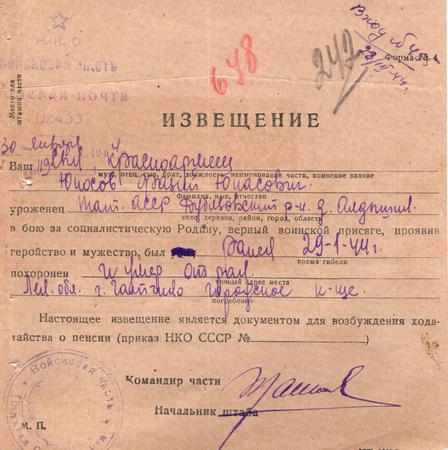 Н К О
Войсковая часть
02433
Место для
штампа части
648
247
Вход № 453
Форма № 4
ИЗВЕЩЕНИЕ
30 января 194
Ваш сын, красноармеец
муж, отец, сын, брат, должность, наименование части, воинское звание
Юнасович
фамилия, имя, отчество
уроженец Тат. АССР р-н. д.
село, деревня, район, город, область
в бою за социалистическую Родину, верный воинской присяге, проявив
геройство и мужество, был ранен 29-1-44 г.
время гибели
похоронен и умер от ран.
точный адрес места
Лен. обл. г. Гатчино городское к-ще.
погребения
Настоящее извещение является документом для возбуждения хода-
тайства о пенсии (приказ НКО СССР №
Командир части
Начальник штаба
М. П.
Войсковая часть